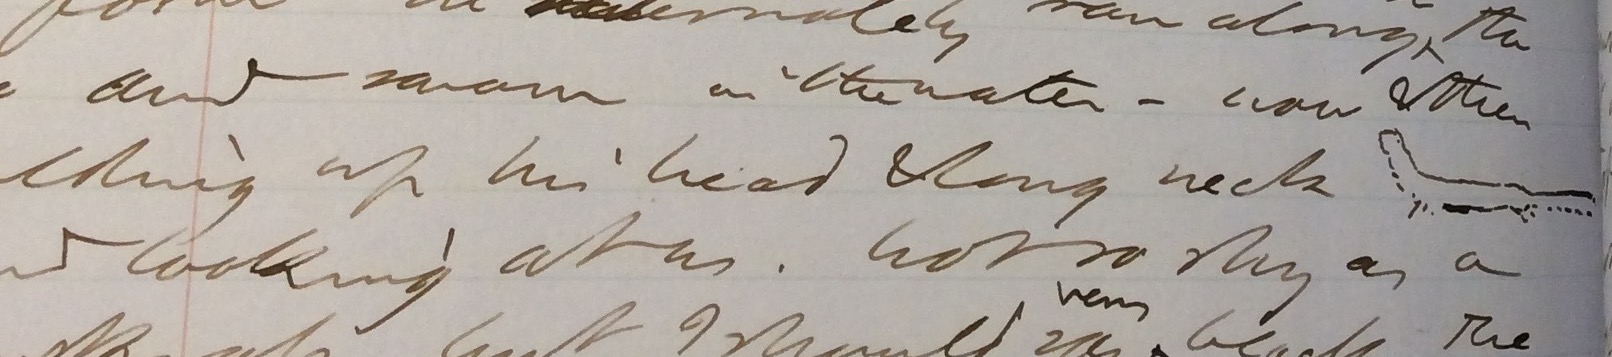 alternately ran along the
and swam in the water - now & then
holding up his head & long neck
looking at us. Not so shy as a
but I should say very black The